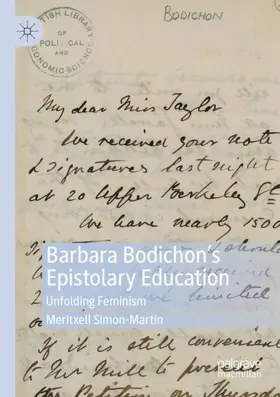 BODICHON
TISH LIBRARY
OF
POLITICAL
AND
ONOMIC SCIENC
My dear Miss Taylor
We received your note
& signatures last night
at 20 Upper Berkeley St
We have nearly 1500
Barbara Bodichon's
Epistolary Education
Unfolding Feminism
Meritxell Simon-Martin
If it is still convenient
to Mr Mill to
the Petition on
palgrave
macmillan